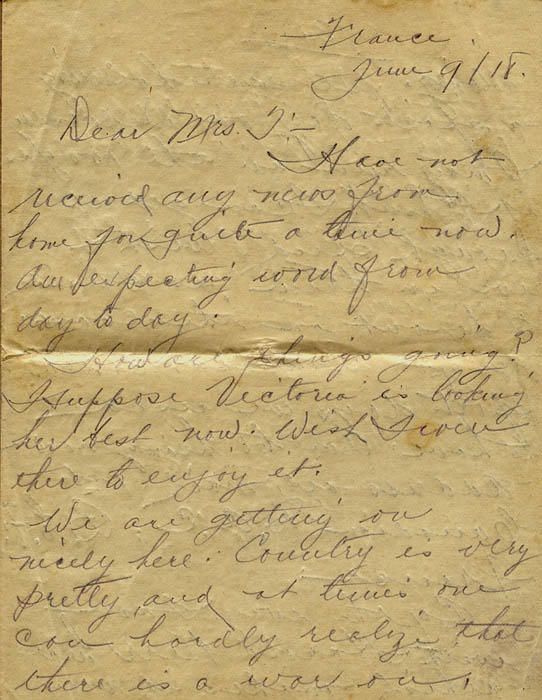 France.
June 9/18.
Dear Mrs. T:-
Have not
received any news from
home for quite a time now.
Am expecting word from
day to day.
How are things going?
I suppose Victoria is looking
her best now. Wish I were
there to enjoy it.
We are getting on
nicely here. Country is very
pretty and at times one
can hardly realize that
there is a war on.